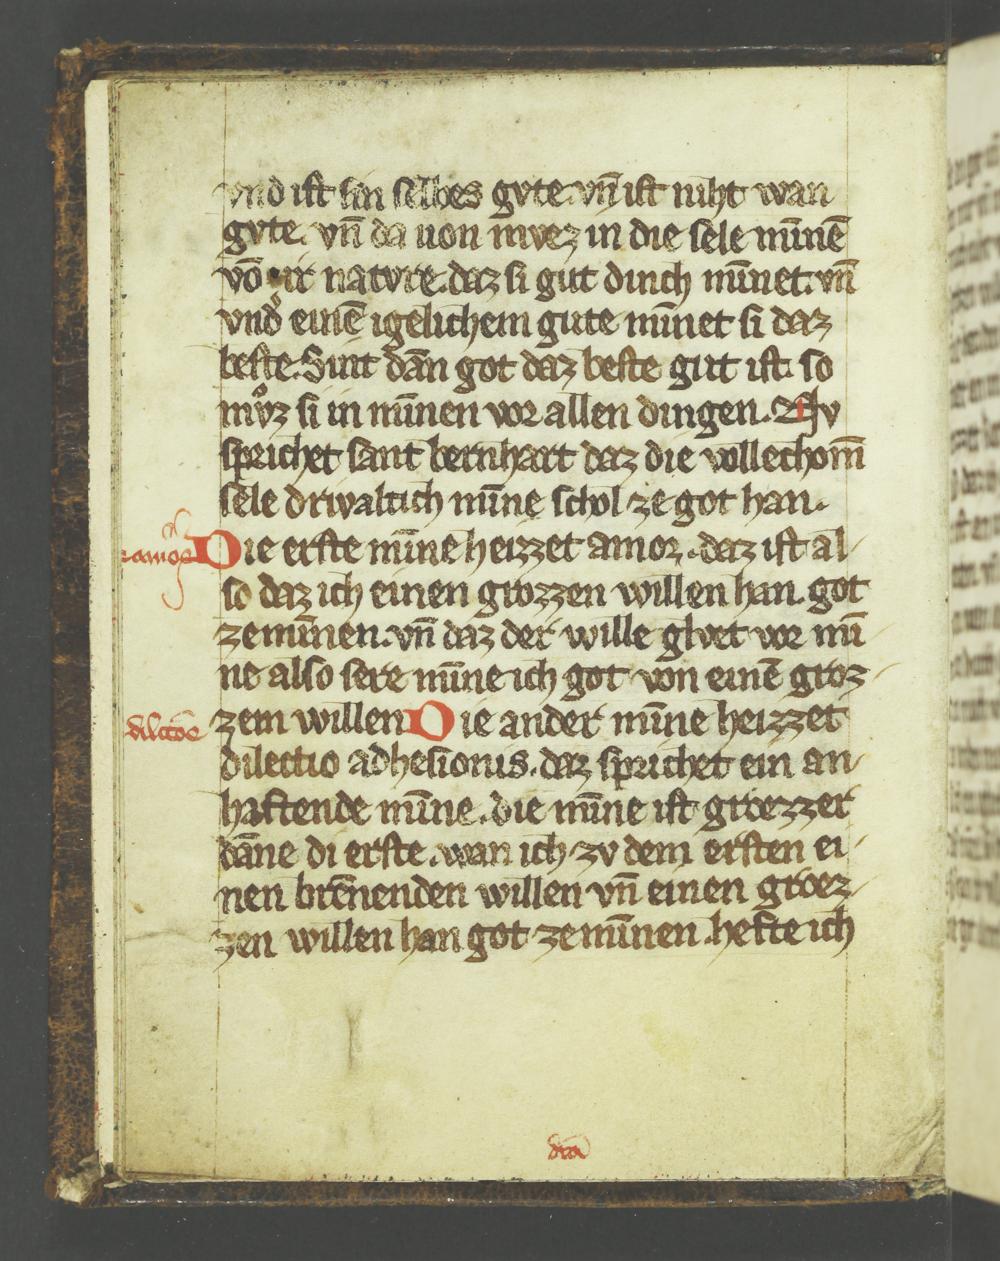 vnd ist sin selbes gvte. vn̄ ist niht wan
gvte. vn̄ da uon mvez in die sele minnē
vō ir natvre. daz si gut dinch minnet. vn̄
vnd̾ einē igelichem gute minnet si daz
beste. Sint dān got daz beste gut ist. so
mv̊z si in minnen vor allen dingen. Nv
sprichet sant bernhart daz die vollechom̄
sele drivaltich minne schol ze got han.
Die erste minne heizzet amor. daz ist al
so daz ich einen grozzen willen han. got
ze minnen. vn̄ daz der wille glvet vor min
ne also sere minne ich got von einē groz
zem willen Die ander minne heizzet
dilectio adhesionis. daz sprichet ein an
haftende minne. die minne ist groezzer
dāne di erste. wan ich zv dem ersten ei
nen brēnenden willen vn̄ einen groez
zen willen han got ze minnen. hefte ich